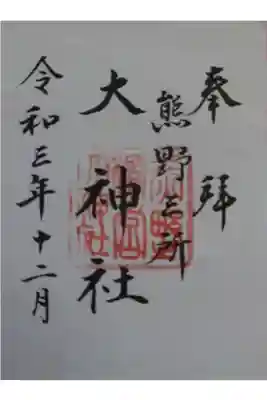 奉拝
熊野三所
大神社
令和三年十二月